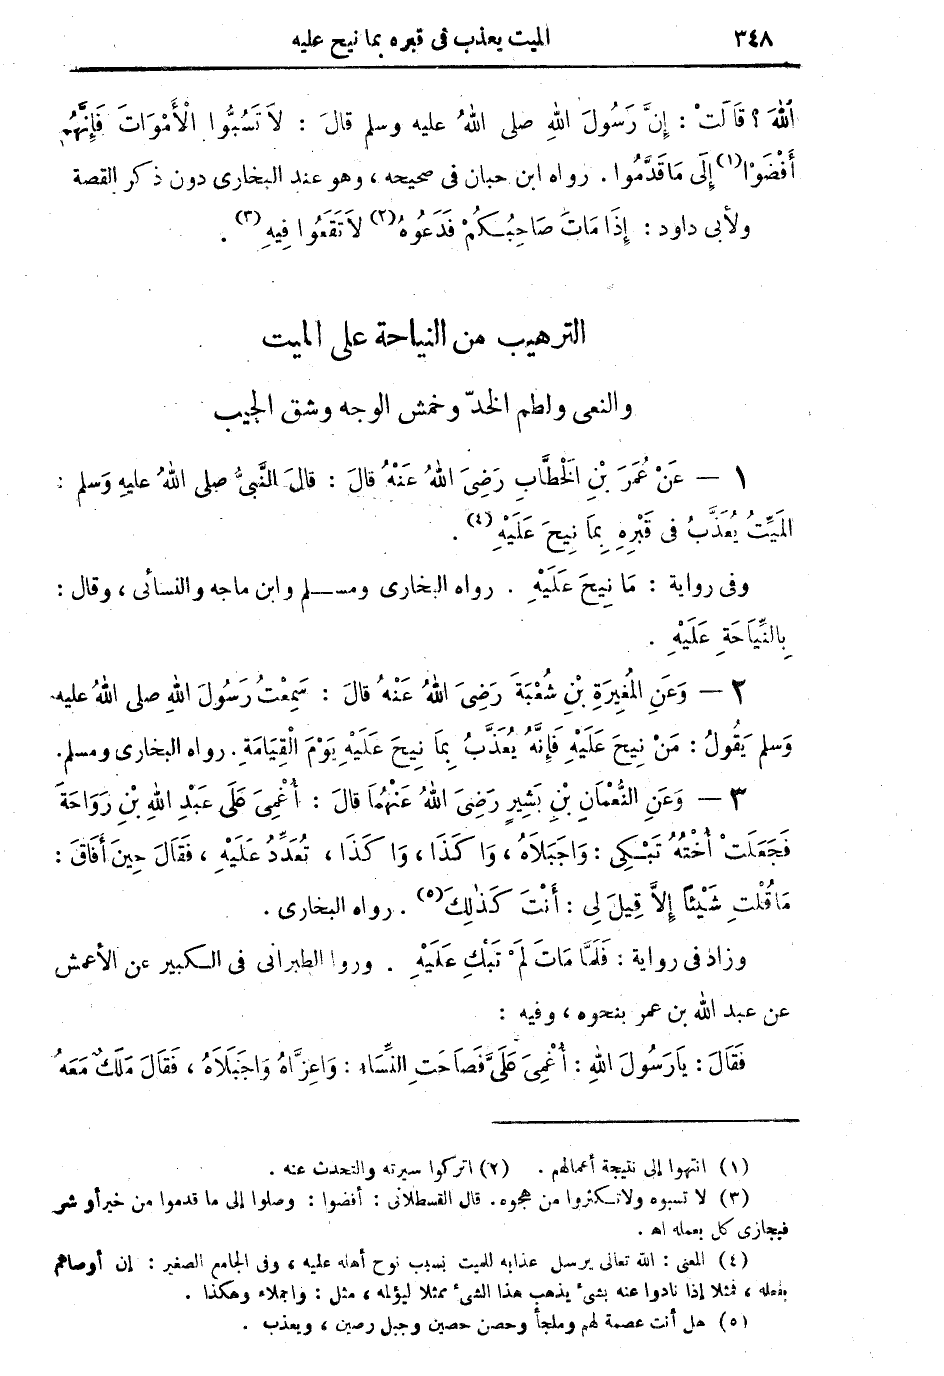 ٣٤٨ الميت يعذب فى قبره بما نيح عليه
اللهَ؟ قَالَتْ: إِنَّ رَسُولَ اللهِ صلى اللهُ عليه وسلم قالَ: لاَ تَسُبُّوا الْأَمْوَاتَ فَإِنَّهُمْ
أَفْضَوْا(١) إِلَى مَا قَدَّمُوا. رواه ابن حبان فى صحيحه، وهو عند البخارى دون ذكر القصة
ولأبى داود: إِذَا مَاتَ صَاحِبُكُمْ فَدَعُوهُ(٢) لاَ تَقَعُوا فِيهِ(٣).
الترهيب من النياحة على الميت
والنعى ولطم الخدّ وخمش الوجه وشق الجيب
١ — عَنْ عُمَرَ بْنِ الْخَطَّابِ رَضِىَ اللهُ عَنْهُ قالَ: قالَ النَّبِىُّ صلى اللهُ عليهِ وَسلم:
المَيِّتُ يُعَذَّبُ فى قَبْرِهِ بِمَا نِيحَ عَلَيْهِ(٤).
وفى رواية: مَا نِيحَ عَلَيْهِ. رواه البخارى ومسلم وابن ماجه والنسائى، وقال:
بِالنِّيَاحَةِ عَلَيْهِ.
٢ — وَعَنِ المُغِيرَةِ بْنِ شُعْبَةَ رَضِىَ اللهُ عَنْهُ قالَ: سَمِعْتُ رَسُولَ اللهِ صلى اللهُ عليه
وَسلم يَقُولُ: مَنْ نِيحَ عَلَيْهِ فَإِنَّهُ يُعَذَّبُ بِمَا نِيحَ عَلَيْهِ يَوْمَ الْقِيَامَةِ. رواه البخارى ومسلم.
٣ — وَعَنِ النُّعْمَانِ بْنِ بَشِيرٍ رَضِىَ اللهُ عَنْهُمَا قالَ: أُغْمِىَ عَلَى عَبْدِ اللهِ بْنِ رَوَاحَةَ
فَجَعَلَتْ أُخْتُهُ تَبْكِى: وَاجَبَلاَهُ، وَا كَذَا، وَا كَذَا، تُعَدِّدُ عَلَيْهِ، فَقَالَ حِينَ أَفَاقَ:
مَا قُلْتِ شَيْئًا إِلاَّ قِيلَ لِى: أَنْتَ كَذٰلِكَ(٥). رواه البخارى.
وزاد فى رواية: فَلَمَّا مَاتَ لَمْ تَبْكِ عَلَيْهِ. وروا الطبرانى فى الكبير عن الأعمش
عن عبد الله بن عمر بنحوه، وفيه:
فَقَالَ: يَارَسُولَ اللهِ: أُغْمِىَ عَلَىَّ فَصَاحَتِ النِّسَاء: وَاعِزَّاهُ وَاجَبَلَاهُ، فَقَالَ مَلَكٌ مَعَهُ
(١) انتهوا إلى نتيجة أعمالهم. (٢) اتركوا سيرته والتحدث عنه.
(٣) لا تسبوه ولا تكثروا من هجوه. قال القسطلانى: أفضوا: وصلوا إلى ما قدموا من خير أو شر
فيجازى كل بعمله اه.
(٤) المعنى: الله تعالى يرسل عذابه للميت بسبب نوح أهله عليه، وفى الجامع الصغير: إن أوصاهم
بفعله، فمثلا إذا نادوا عنه بشىء يذهب هذا الشىء ممثلا ليؤلمه، مثل: واجملاء وهكذا.
(٥) هل أنت عصمة لهم وملجأ وحصن حصين وجبل رصين، ويعذب.